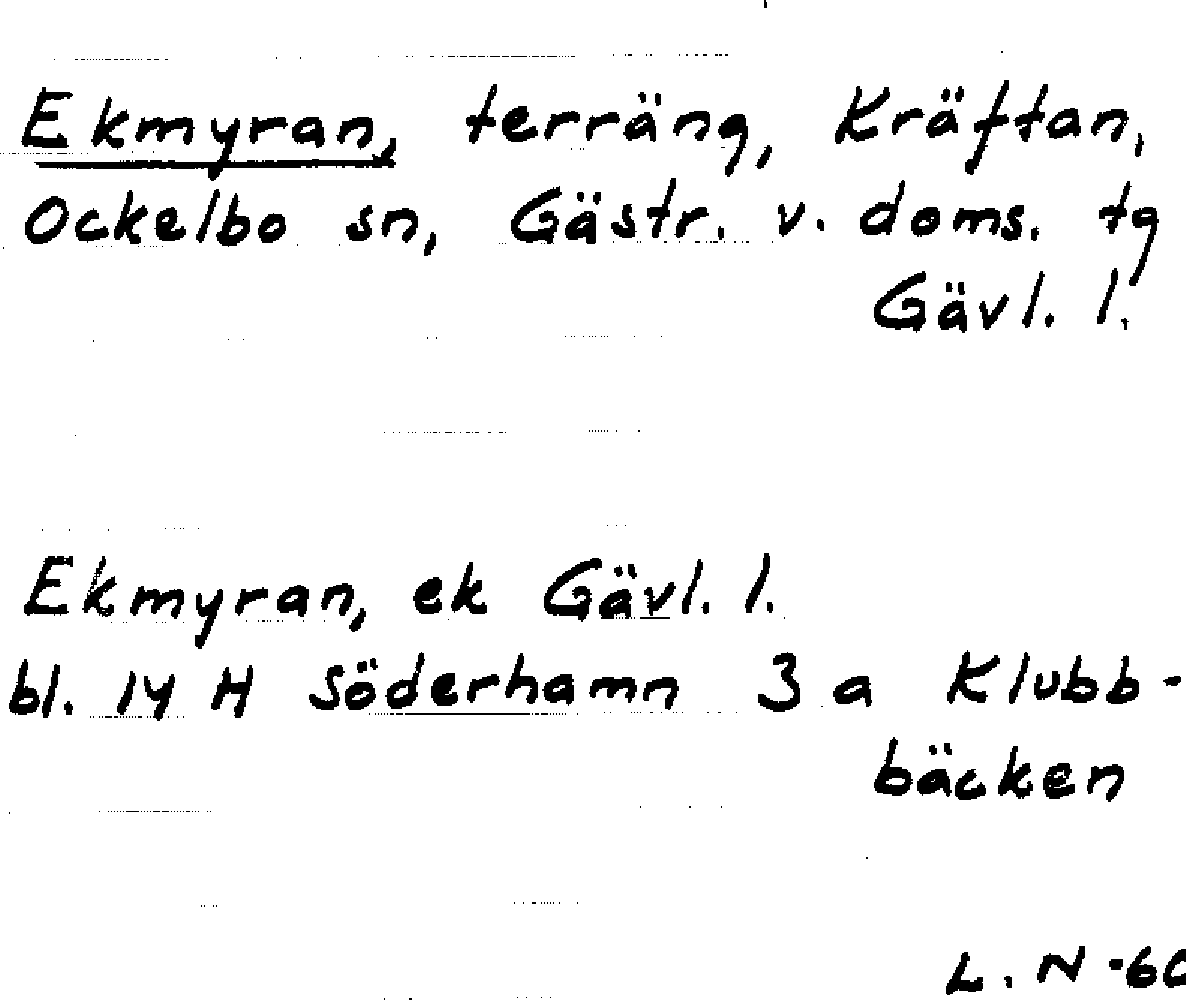 Ekmyran, terräng, Kräftan,
Ockelbo sn, Gästr. v. doms. tg
Gävl. l.
Ekmyran, ek Gävl. l.
bl. 14 H Söderhamn 3 a Klubb-
bäcken
L. N -60